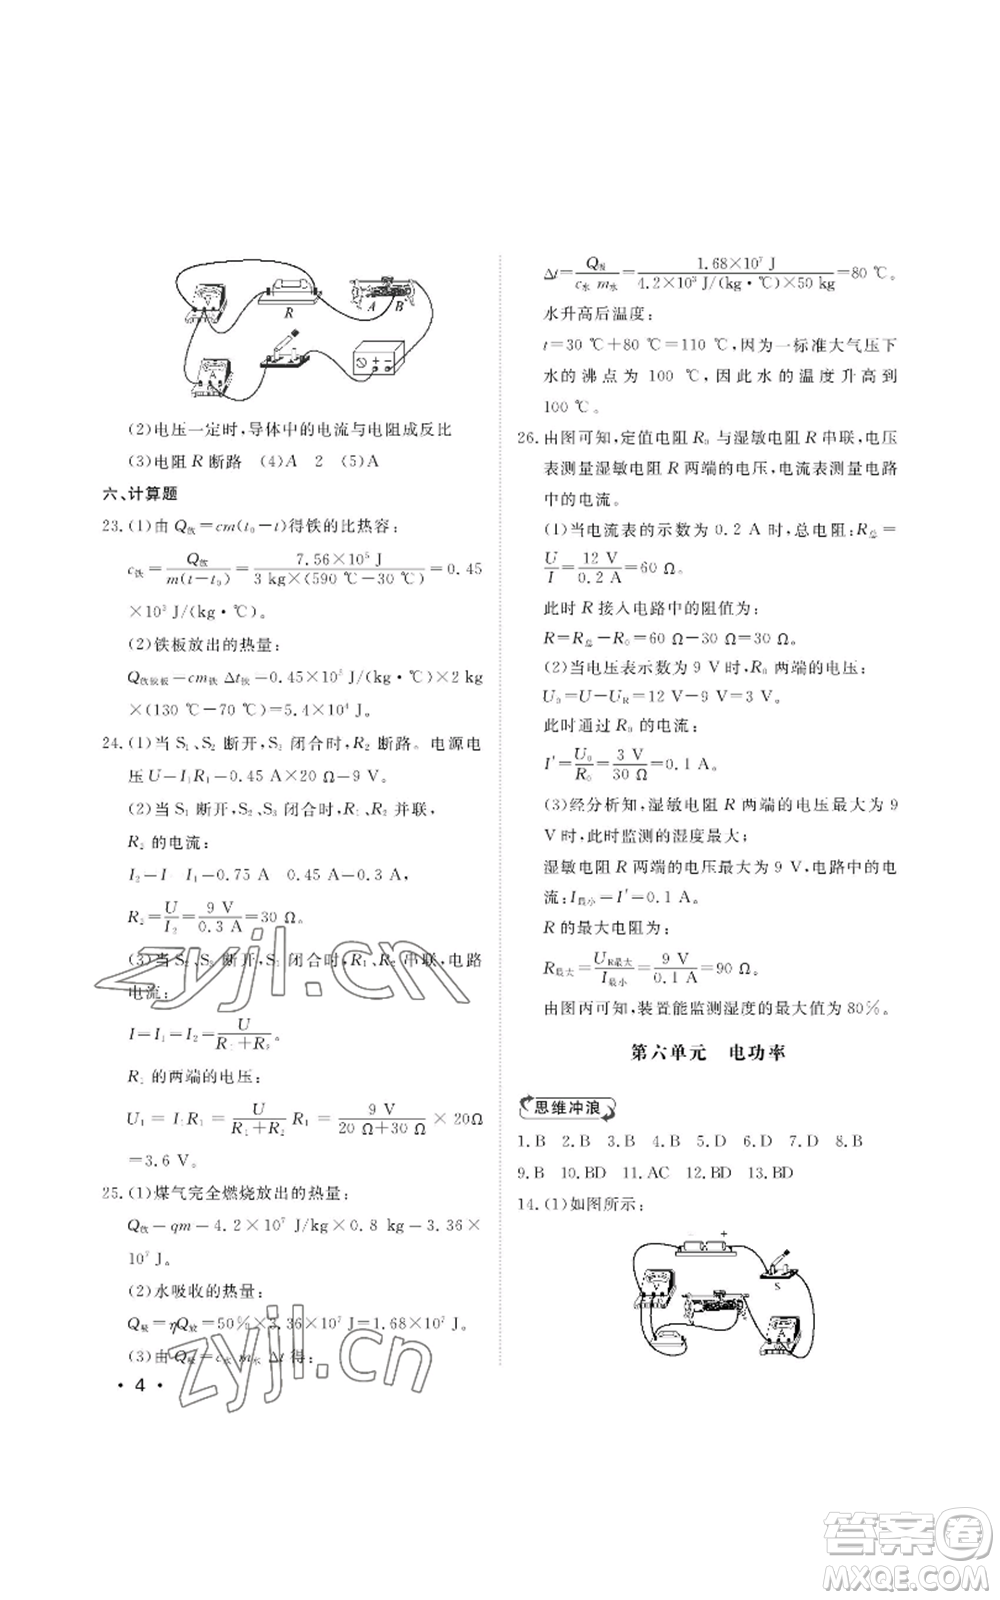 R A B
V
A
(2)电压一定时,导体中的电流与电阻成反比
(3)电阻 R 断路 (4)A 2 (5)A
六、计算题
23.(1)由 Q放=cm(t0-t)得铁的比热容:
c铁=Q放/m(t-t0)=7.56×10⁵ J/3 kg×(590 ℃-30 ℃)=0.45
×10³ J/(kg·℃)。
(2)铁板放出的热量:
Q放铁板-cm铁 Δt铁-0.45×10³ J/(kg·℃)×2 kg
×(130 ℃-70 ℃)=5.4×10⁴ J。
24.(1)当 S1、S2 断开,S 闭合时,R2 断路。电源电
压 U-I1R1-0.45 A×20 Ω-9 V。
(2)当 S1 断开,S2、S3 闭合时,R1、R2 并联,
R2 的电流:
I2-I I1-0.75 A 0.45 A-0.3 A,
R2=U/I2=9 V/0.3 A=30 Ω。
(3)当 S 断开,S 闭合时,R1、R2 串联,电路
电流:
I=I1=I2=U/R1+R2。
R1 的两端的电压:
U1=I1R1=U/R1+R2 R1=9 V/20 Ω+30 Ω×20Ω
=3.6 V。
25.(1)煤气完全燃烧放出的热量:
Q放-qm-4.2×10⁷ J/kg×0.8 kg-3.36×
10⁷ J。
(2)水吸收的热量:
Q吸=ηQ放=50%×3.36×10⁷ J=1.68×10⁷ J。
(3)由 Q吸=c水 m水 Δt 得:
· 4 ·
Δt=Q吸/c水 m水=1.68×10⁷ J/4.2×10³ J/(kg·℃)×50 kg=80 ℃。
水升高后温度:
t=30 ℃+80 ℃=110 ℃,因为一标准大气压下
水的沸点为 100 ℃,因此水的温度升高到
100 ℃。
26.由图可知,定值电阻 R0 与湿敏电阻 R 串联,电压
表测量湿敏电阻 R 两端的电压,电流表测量电路
中的电流。
(1)当电流表的示数为 0.2 A 时,总电阻:R总=
U/I=12 V/0.2 A=60 Ω。
此时 R 接入电路中的阻值为:
R=R总-R0=60 Ω-30 Ω=30 Ω。
(2)当电压表示数为 9 V 时,R0 两端的电压:
U0=U-UR=12 V-9 V=3 V。
此时通过 R0 的电流:
I'=U0/R0=3 V/30 Ω=0.1 A。
(3)经分析知,湿敏电阻 R 两端的电压最大为 9
V 时,此时监测的湿度最大;
湿敏电阻 R 两端的电压最大为 9 V,电路中的电
流:I最小=I'=0.1 A。
R 的最大电阻为:
R最大=UR最大/I最小=9 V/0.1 A=90 Ω。
由图丙可知,装置能监测湿度的最大值为 80%。
第六单元 电功率
思维冲浪
1.B 2.B 3.B 4.B 5.D 6.D 7.D 8.B
9.B 10.BD 11.AC 12.BD 13.BD
14.(1)如图所示:
- +
S
zyjl.cn
zyjl.cn
答案圈
MXQE.COM